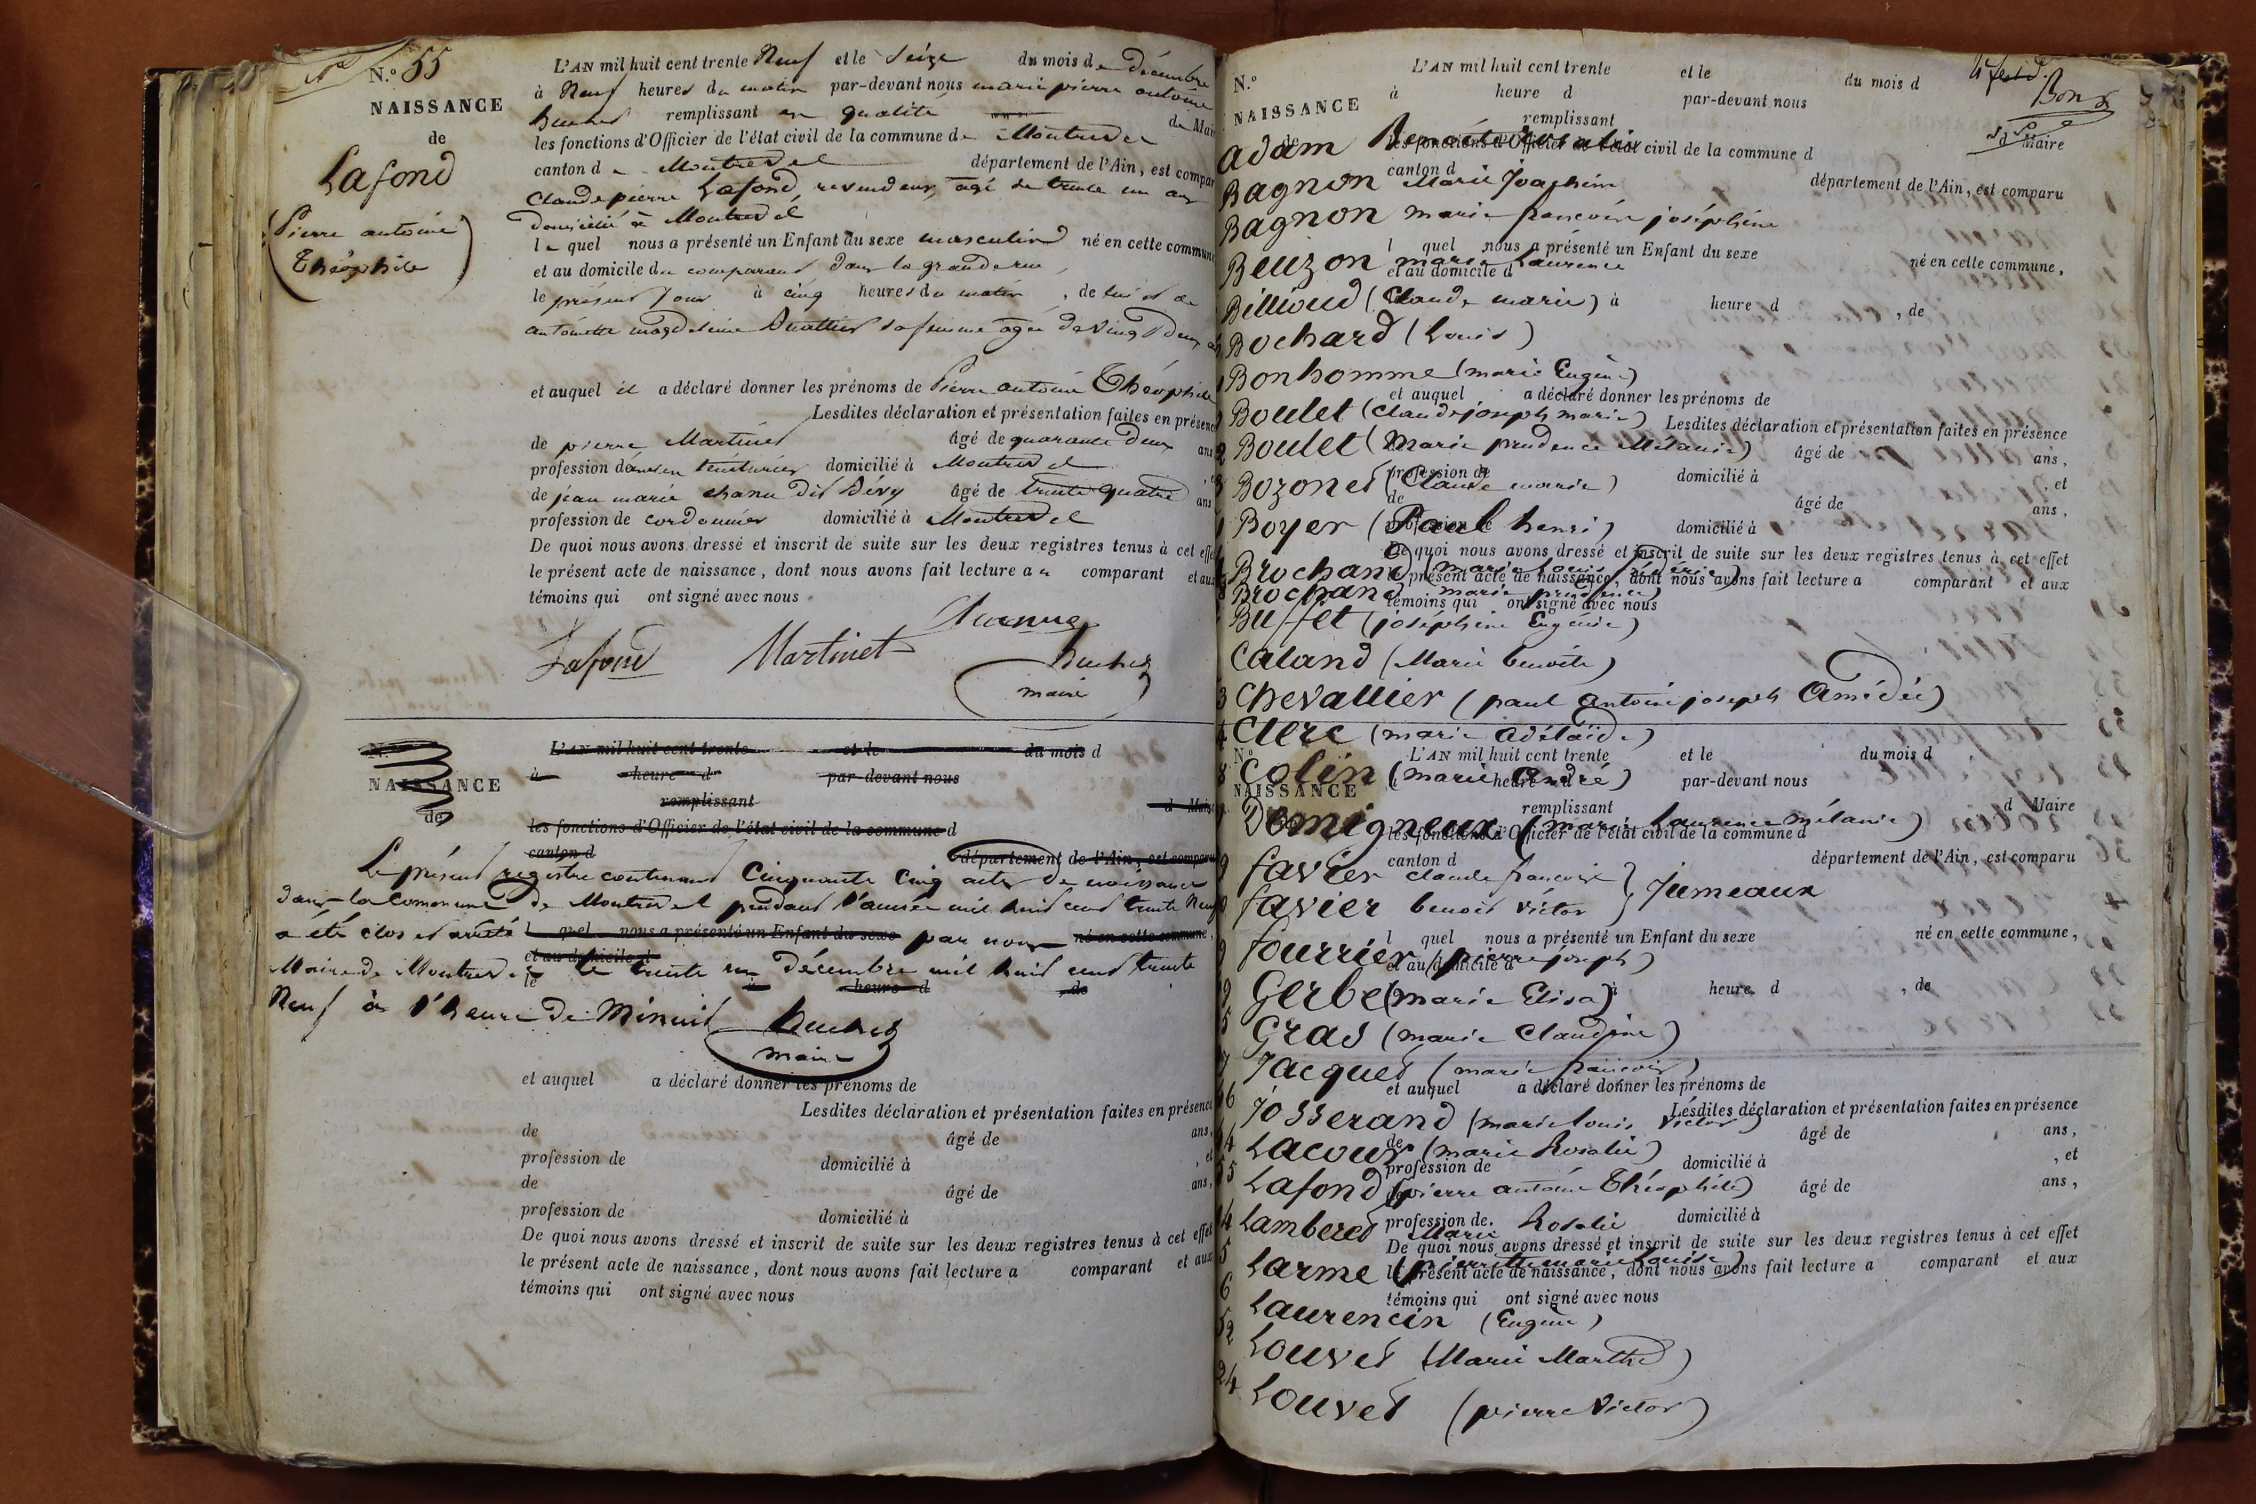 N.° 55
NAISSANCE
de
Lafond
(Pierre antoine
Théophile)
L'AN mil huit cent trente Neuf et le Seize du mois de décembre
à Neuf heures du matin par-devant nous marie pierre antoine
remplissant en qualité de Mai
les fonctions d'Officier de l'état civil de la commune de Montrevel
canton de Montrevel département de l'Ain, est compar
Claude pierre Lafond, revendeur, agé de trente un ans
domicilié à Montrevel
lequel nous a présenté un Enfant du sexe masculin né en cette commune
et au domicile du comparant dans la grande rue,
le présent jour à cinq heures du matin, de lui et de
antoinette magdeleine sa femme agée de vingt deux
et auquel il a déclaré donner les prénoms de Pierre antoine Théophile
Lesdites déclaration et présentation faites en présence
de pierre Martinet âgé de quarante deux ans
profession d'ancien teinturier domicilié à Montrevel, et
de jean marie chanu dit Dévy âgé de trente quatre ans
profession de cordonnier domicilié à Montrevel
De quoi nous avons dressé et inscrit de suite sur les deux registres tenus à cet effet
le présent acte de naissance, dont nous avons fait lecture au comparant et aux
témoins qui ont signé avec nous
Lafond Martinet
maire
N.°
NAISSANCE
de
L'AN mil huit cent trente et le du mois d
à heure d par-devant nous
remplissant d Maire
les fonctions d'Officier de l'état civil de la commune d
canton d département de l'Ain, est comparu
Le présent registre contenant Cinquante Cinq actes de naissances
dans la Commune de Montrevel pendant l'année mil huit cent trente Neuf
a été clos et arrêté l quel nous a présenté un Enfant du sexe par nous né en cette commune,
et au domicile d
Maire de Montrevel le trente un décembre mil huit cent trente
le à heure d, de
Neuf à l'heure de Minuit
maire
et auquel a déclaré donner les prénoms de
Lesdites déclaration et présentation faites en présence
de âgé de ans,
profession de domicilié à, et
de âgé de ans,
profession de domicilié à
De quoi nous avons dressé et inscrit de suite sur les deux registres tenus à cet effet
le présent acte de naissance, dont nous avons fait lecture a comparant et aux
témoins qui ont signé avec nous
N.° L'AN mil huit cent trente et le du mois d
à heure d par-devant nous
NAISSANCE remplissant Maire
adam
les fonctions d'Officier de l'état civil de la commune d
canton d département de l'Ain, est comparu
Bagnon Marie Joachim
Bagnon marie françoise joséphine
l quel nous a présenté un Enfant du sexe né en cette commune,
Beuzon marie Laurence
et au domicile d
Billioud (Claude marie) à heure d, de
Bochard (Louis)
Bonhomme (marie Eugène)
et auquel a déclaré donner les prénoms de
Boulet (Claude joseph marie) Lesdites déclaration et présentation faites en présence
Boulet (Marie prudence Mélanie) âgé de ans,
profession de domicilié à, et
Bozonet (Claude marie)
de âgé de ans,
Boyer (Paul henri) profession de domicilié à
De quoi nous avons dressé et inscrit de suite sur les deux registres tenus à cet effet
Brochand (marie Louis
le présent acte de naissance, dont nous avons fait lecture a comparant et aux
Brochand marie
témoins qui ont signé avec nous
Buffet (joséphine Eugénie)
Caland (Marie benoîte)
Chevallier (paul antoine joseph Amédée)
Clerc (marie adélaïde)
N.° L'AN mil huit cent trente et le du mois d
Colin (marie André) heure d par-devant nous
NAISSANCE
remplissant d Maire
Domigneux (marie Laurence mélanie)
les fonctions d'Officier de l'état civil de la commune d
canton d département de l'Ain, est comparu
favier claude françoise
favier benoit victor } Jumeaux
l quel nous a présenté un Enfant du sexe né en cette commune,
fourrier (pierre joseph)
et au domicile d
Gerbe (marie Elisa) à heure d, de
Gras (marie Claudine)
Jacquet (marie françois)
et auquel a déclaré donner les prénoms de
Lesdites déclaration et présentation faites en présence
Josserand (marie louis Victor)
Lacour (marie Rosalie) de âgé de ans,
profession de domicilié à, et
Lafond (pierre antoine Théophile) âgé de ans,
Lamberet Marie Rosalie
profession de domicilié à
De quoi nous avons dressé et inscrit de suite sur les deux registres tenus à cet effet
Larme (pierrette marie Louise)
le présent acte de naissance, dont nous avons fait lecture a comparant et aux
témoins qui ont signé avec nous
Laurencin (Eugène)
Louvet (Marie Marthe)
Louvet (pierre Victor)